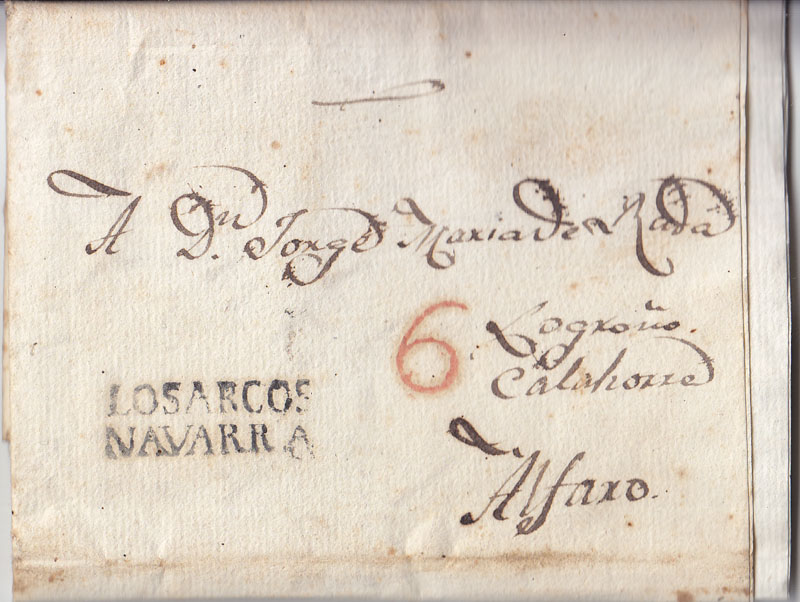 A Dn. Jorge Maria de Rada
6
Logroño.
Calahorra
Alfaro.
LOSARCOS
NAVARRA